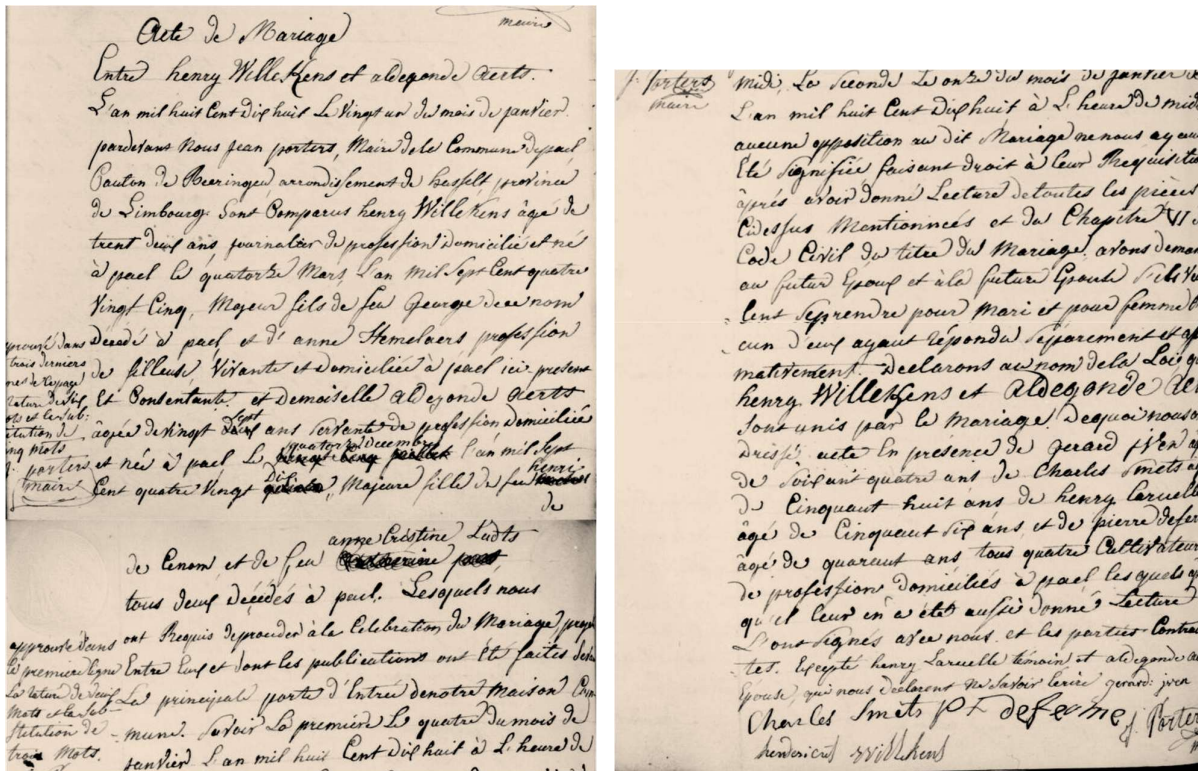 maire
Acte de Mariage
Entre henry Willekens et aldegonde Aerts.
L'an mil huit Cent Dix huit Le Vingt un du mois de janvier
pardevant Nous jean porters, Maire de la Commune de pael
Canton de Beeringen, arrondissement de hasselt province
de Limbourg. Sont Comparus henry Willekens âgé de
trent deux ans journalier de profession Domicilié et né
à pael le quatorze Mars L'an mil Sept Cent quatre
Vingt Cinq, Majeur fils de feu George de ce nom
Decedé à pael et d'anne Hemelaers profession
de filleuse Vivante et domiciliée à pael ici present
Et Consentante. et Demoiselle aldegonde Aerts
Sept
âgée de vingt ans Servante de profession domiciliée
quatorze Decembre
et née à pael Le L'an mil Sept
Dix henri
Cent quatre Vingt, Majeure fille de feu
de
prouvé dans
trois derniers
nes de la page
rature de six
ots et la sub:
titution de
nq mots
j. porters
maire
anne Cristine Ludts
de Cenom et de feu
tous deux Décédés à pael. Lesquels nous
ont Requis de proceder à la Celebration du Mariage proj
Entre Eux et dont les publications ont Eté faites deva
La principale porte d'Entrée de notre Maison Com
mune. Savoir La premiere Le quatre du mois de
janvier L'an mil huit Cent Dix huit à L'heure de
approuvé dans
la premiere ligne
La rature de deux
Mots et la Sub
stitution de
trois Mots.
j. Porters
maire
midi, La Seconde Le onze du mois de janvier de
L'an mil huit Cent Dix huit à L'heure de midi
aucune opposition au dit Mariage ne nous ayant
Eté Signifiée faisant droit à leur Requisitio
après avoir donné Lecture de toutes les pièces
Cidessus Mentionnées et du Chapitre VI
Code Civil du titre du Mariage, avons deman
au futur Epoux et à la future Epouse S'ils Veu
lent Se prendre pour Mari et pour femme
cun d'eux ayant répondu Séparement et af
mativement. Declarons au nom de la Loi qu
henry Willekens et aldegonde Ae
Sont unis par le Mariage. De quoi nous a
Dressé acte En présence de gerard jven
de Soixant quatre ans de Charles Smets a
de Cinquant huit ans de henry Laruelle
âgé de Cinquant Six ans, et de pierre defer
âgé de quarant ans tous quatre Cultivateur
de profession Domiciliés à pael lesquels
qu'el leur en a eté aussi donné Lecture
L'ont Signés avec nous et les parties Contra
tes. Excepté henry Laruelle témoin et aldegonde
Epouse, qui nous declarent ne Savoir Ecrire gerard: jven
Charles Smets P I deferme j. Porter
hendericus willekens